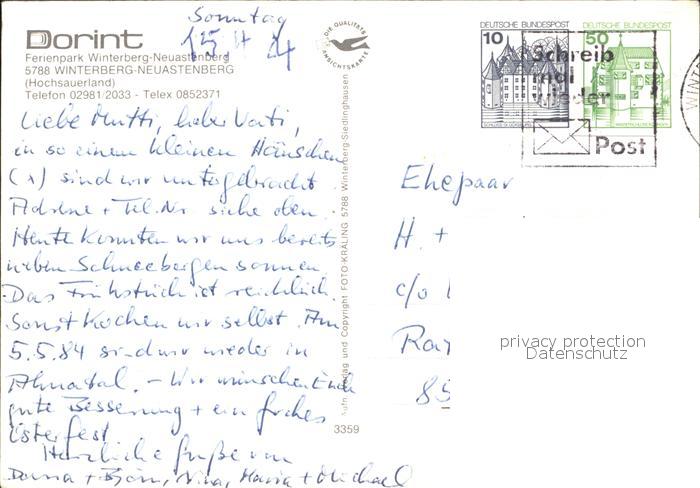 Sonntag
15 4 84
Dorint
Ferienpark Winterberg-Neuastenberg
5788 WINTERBERG-NEUASTENBERG
(Hochsauerland)
Telefon 02981/2033 - Telex 0852371
Liebe Mutti, lieber Vati,
in so einem kleinen Häuschen
(x) sind wir untergebracht.
Adresse + Tel. Nr siehe oben.
Heute konnten wir uns bereits
neben Schneebergen sonnen.
Das Frühstück ist reichlich.
Sonst kochen wir selbst. Am
5.5.84 sind wir wieder in
Ahnatal. - Wir wünschen Euch
gute Besserung + ein frohes
Osterfest
Herzliche Grüße von
+ Björn, Nina, Maria + Michael
DIE QUALITÄTS
ANSICHTSKARTE
Aufn. Verlag und Copyright FOTO-KRÄLING 5788 Winterberg-Siedlinghausen
3359
10 DEUTSCHE BUNDESPOST
SCHLOSS GLÜCKSBURG
50 DEUTSCHE BUNDESPOST
Schreib
mal
wieder
Post
Ehepaar
H. +
c/o
85
privacy protection
Datenschutz